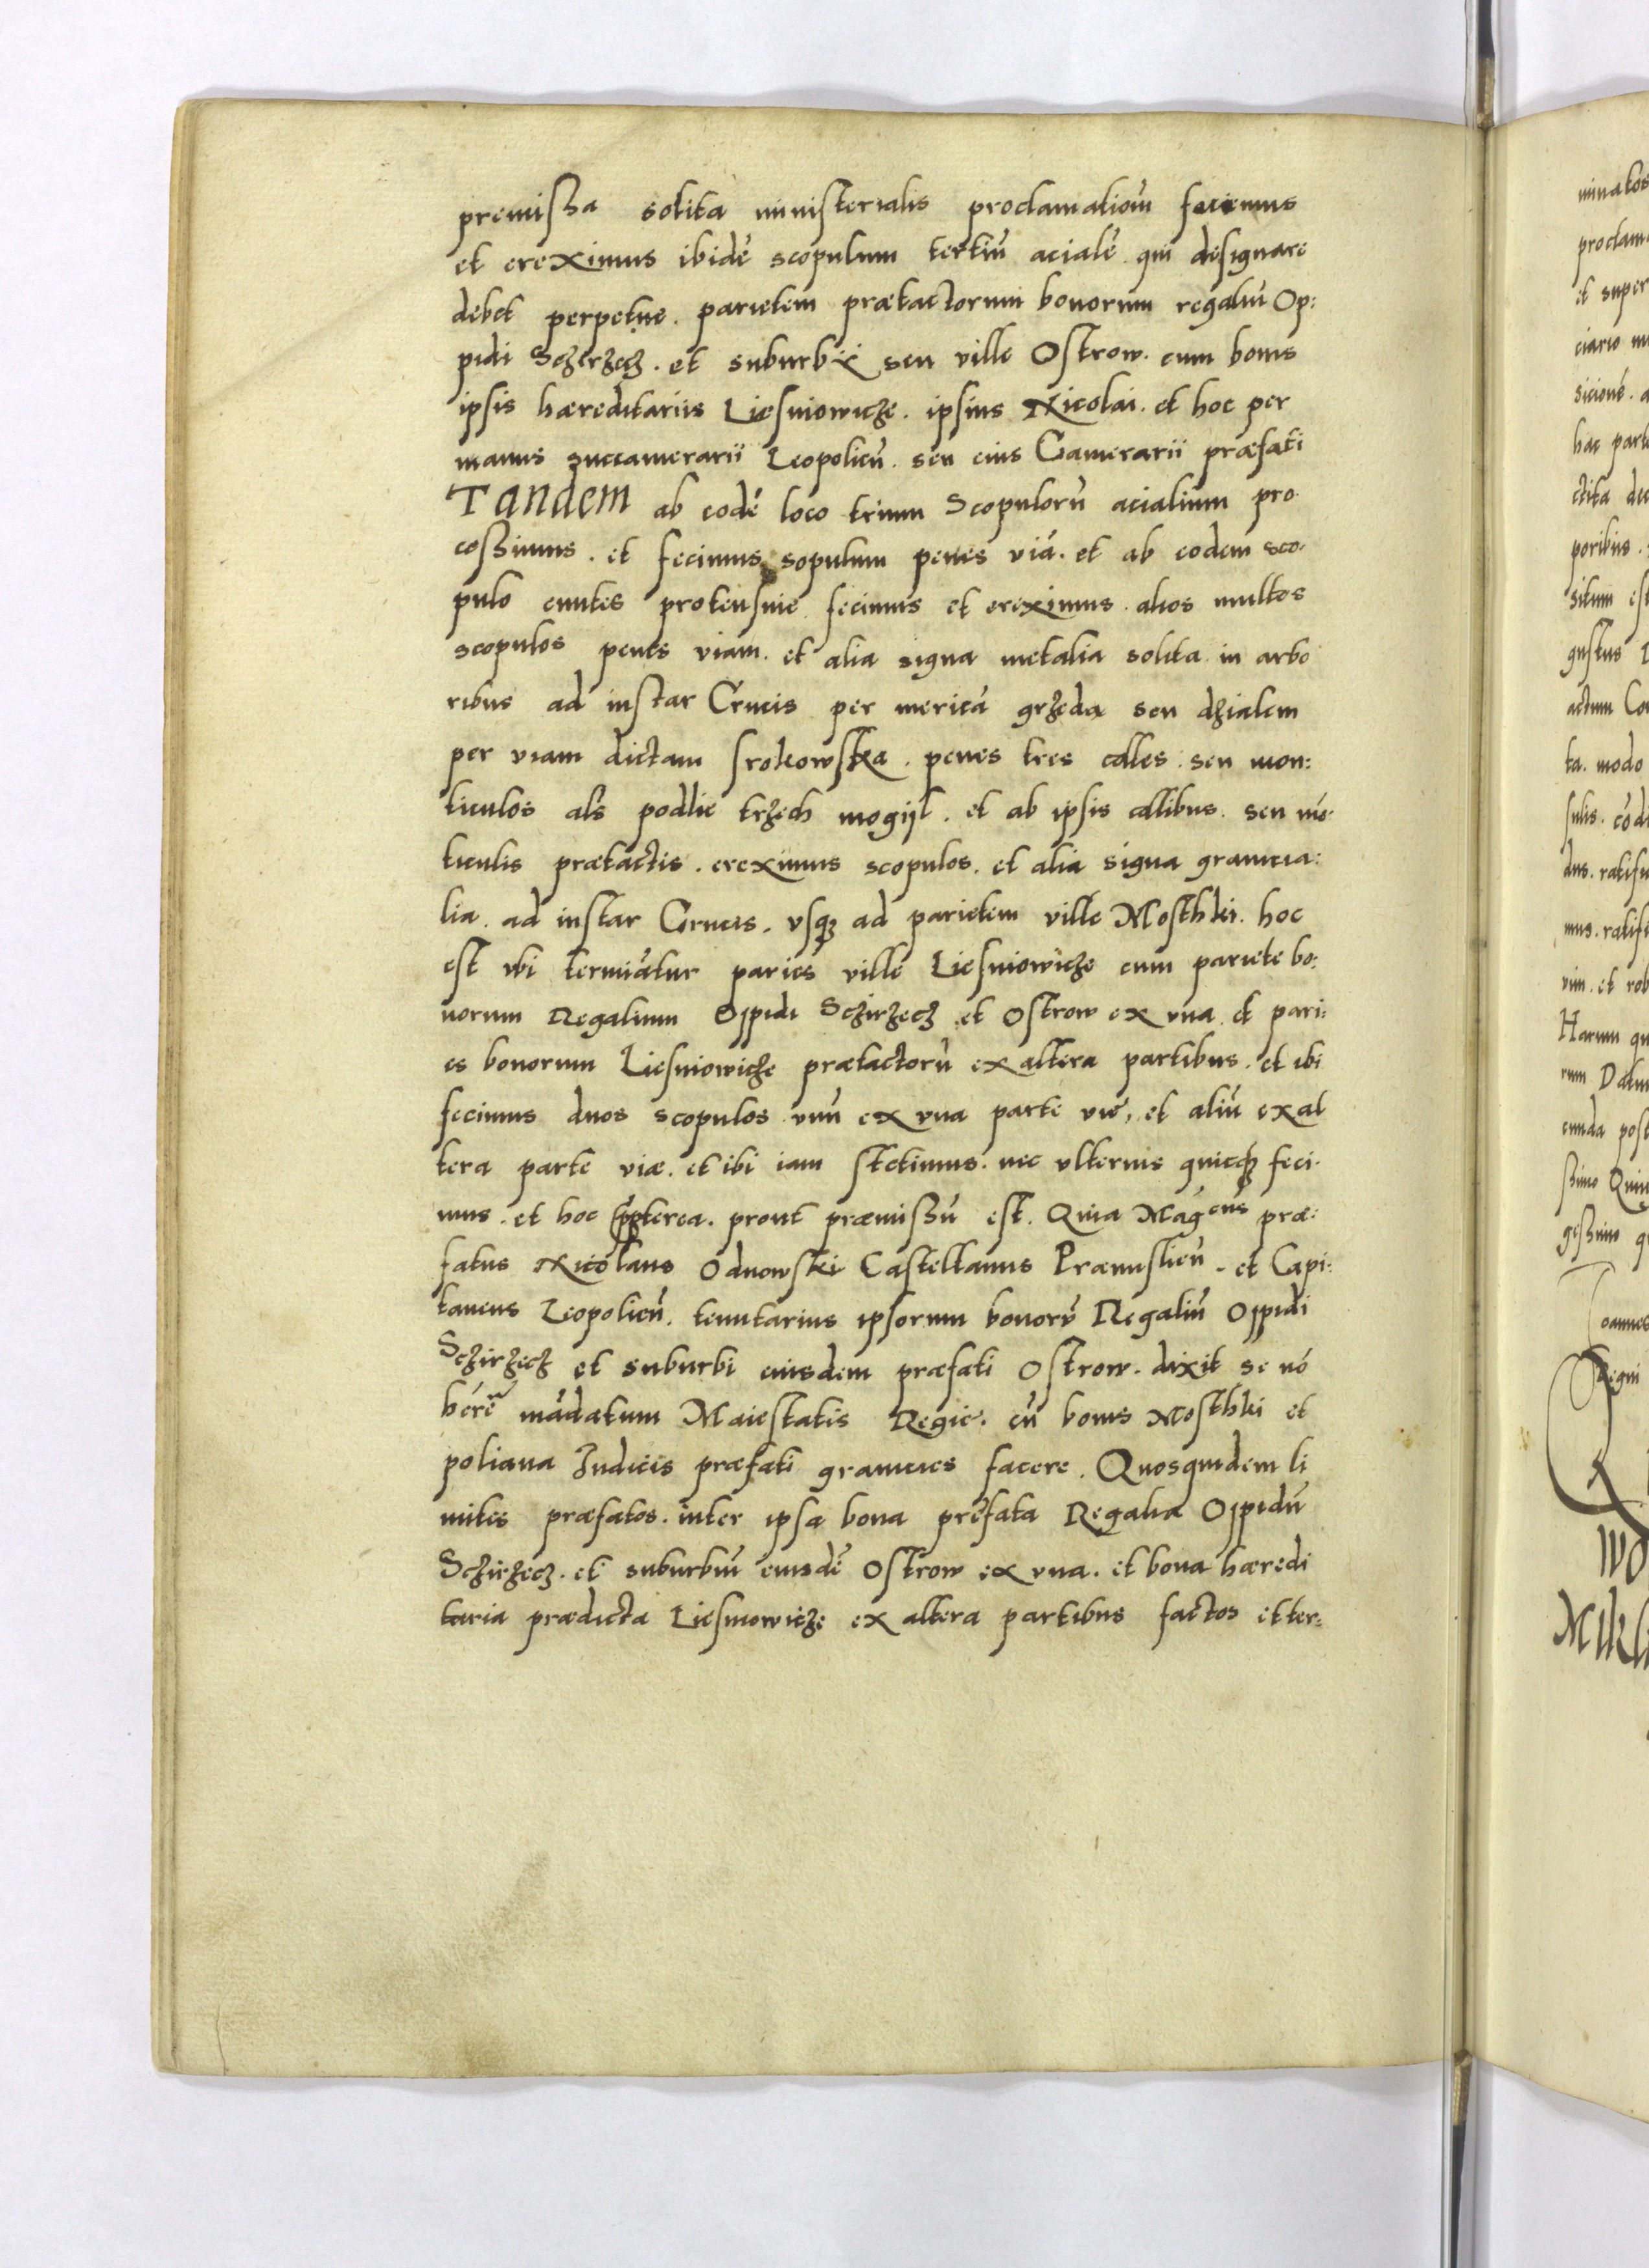 premissa solita ministerialis proclamatiom̄ fecimus
et ereximus ibidē scopulum tertiū acialē qui designare
debet perpetue. parietem prætactorum bonorum regaliū Op:
pidi Sczerzecz. et suburbii seu ville Ostrow. cum bonis
ipsis hæreditariis Liesniowicze. ipsius Nicolai. et hoc per
manus succamerarii Leopolieñ. seu eius Camerarii præfati
Tandem ab eodē loco trium Scopulorū acialium pro
cossimus. et fecimus sopulum penes viā. et ab eodem sco.
pulo euntes protensiue fecimus et ereximus. alios multos
scopulos penes viam. et alia signa metalia solita in arbo
ribus ad instar Crucis per mericā grzęda seu dzialem
per viam dictam srokowska. penes tres calles. seu mon:
ticulos als podlie trzech mogijl. et ab ipsis callibus. seu mō.
ticulis prætactis. ereximus scopulos. et alia signa granicia:
lia. ad instar Crucis. vsq3 ad parietem ville Mosthki. hoc
est vbi termiātur paries ville Liesniowicze cum pariete bo:
norum Regalium Oppidi Sczirzecz et Ostrow ex vna et pari:
es bonorum Liesniowicze prætactorū ex altera partibus. et ibi
fecimus duos scopulos vnū ex vna parte vie, et aliū ex al
tera parte viæ. et ibi iam stetimus. nec vlterius quicq3 feci.
mus. et hoc ppterea. prout præmissū est. Quia Māgcus præ:
fatus Nicolaus Odnowski Castellanus Præmislieñ. et Capi:
taneus Leopolieñ. tenutarius ipsorum bonorū Regaliū Oppidi
Sczirzecz et suburbi eiusdem præfati Ostrow. dixit se nō
hērē mādatum Maiestatis Regie. cū bonis Mosthki et
poliana Iudiciis præfati granicies facere. Quosquidem li
mites præfatos. inter ipsa bona præfata Regalia Oppidū
Sczirzecz. et suburbiū eiusdē Ostrow ex vna. et bona hæredi
taria prædicta Liesniowicze ex altera partibus factos et ter: